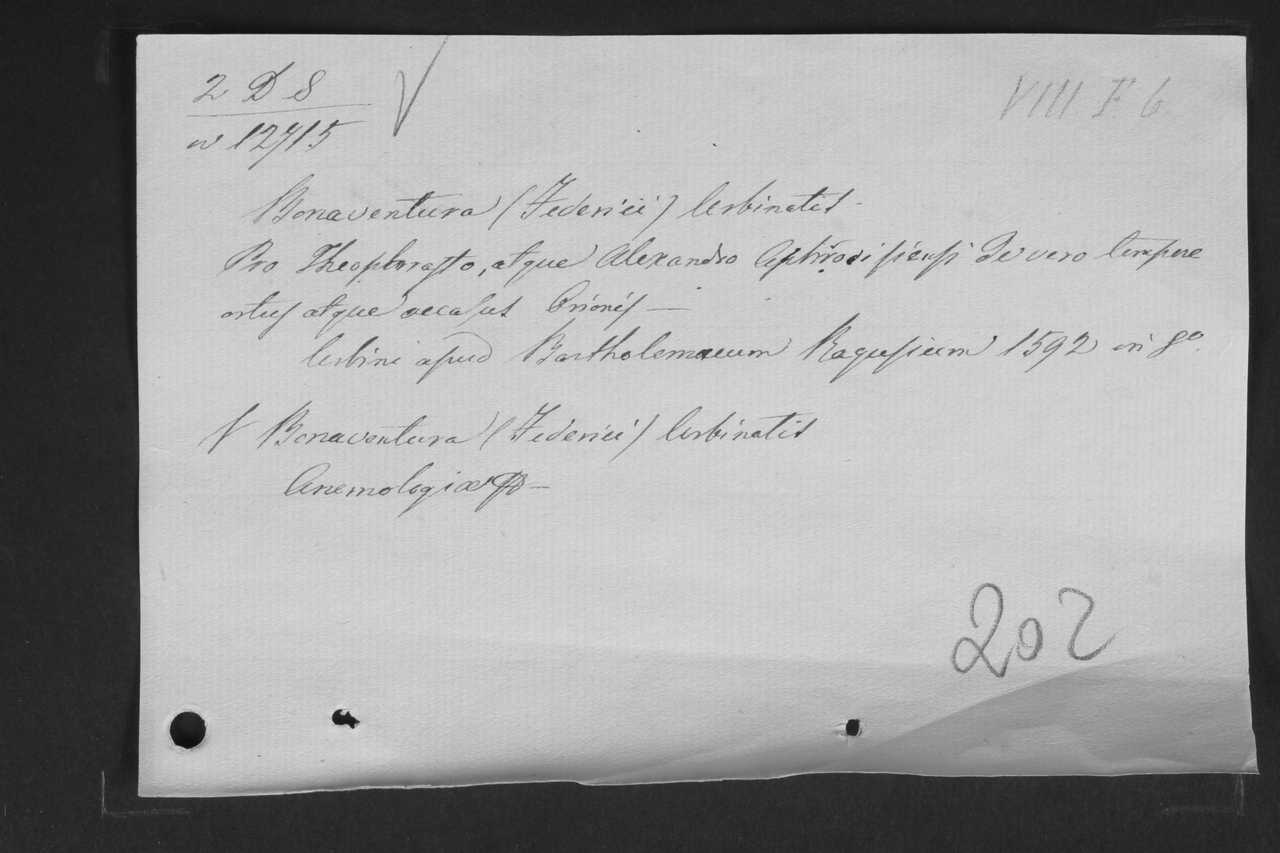 2 D 8
n 12715
VIII F 6
Bonaventura (Federici) Urbinatis -
Pro Theophrasto, atque Alexandro Aphrodisiensi De vero tempore
ortus atque occasus Orionis —
Urbini apud Bartholemaeum Ragusium 1592 in 8º
Bonaventura (Federici) Urbinatis
Anemologiæ —
202